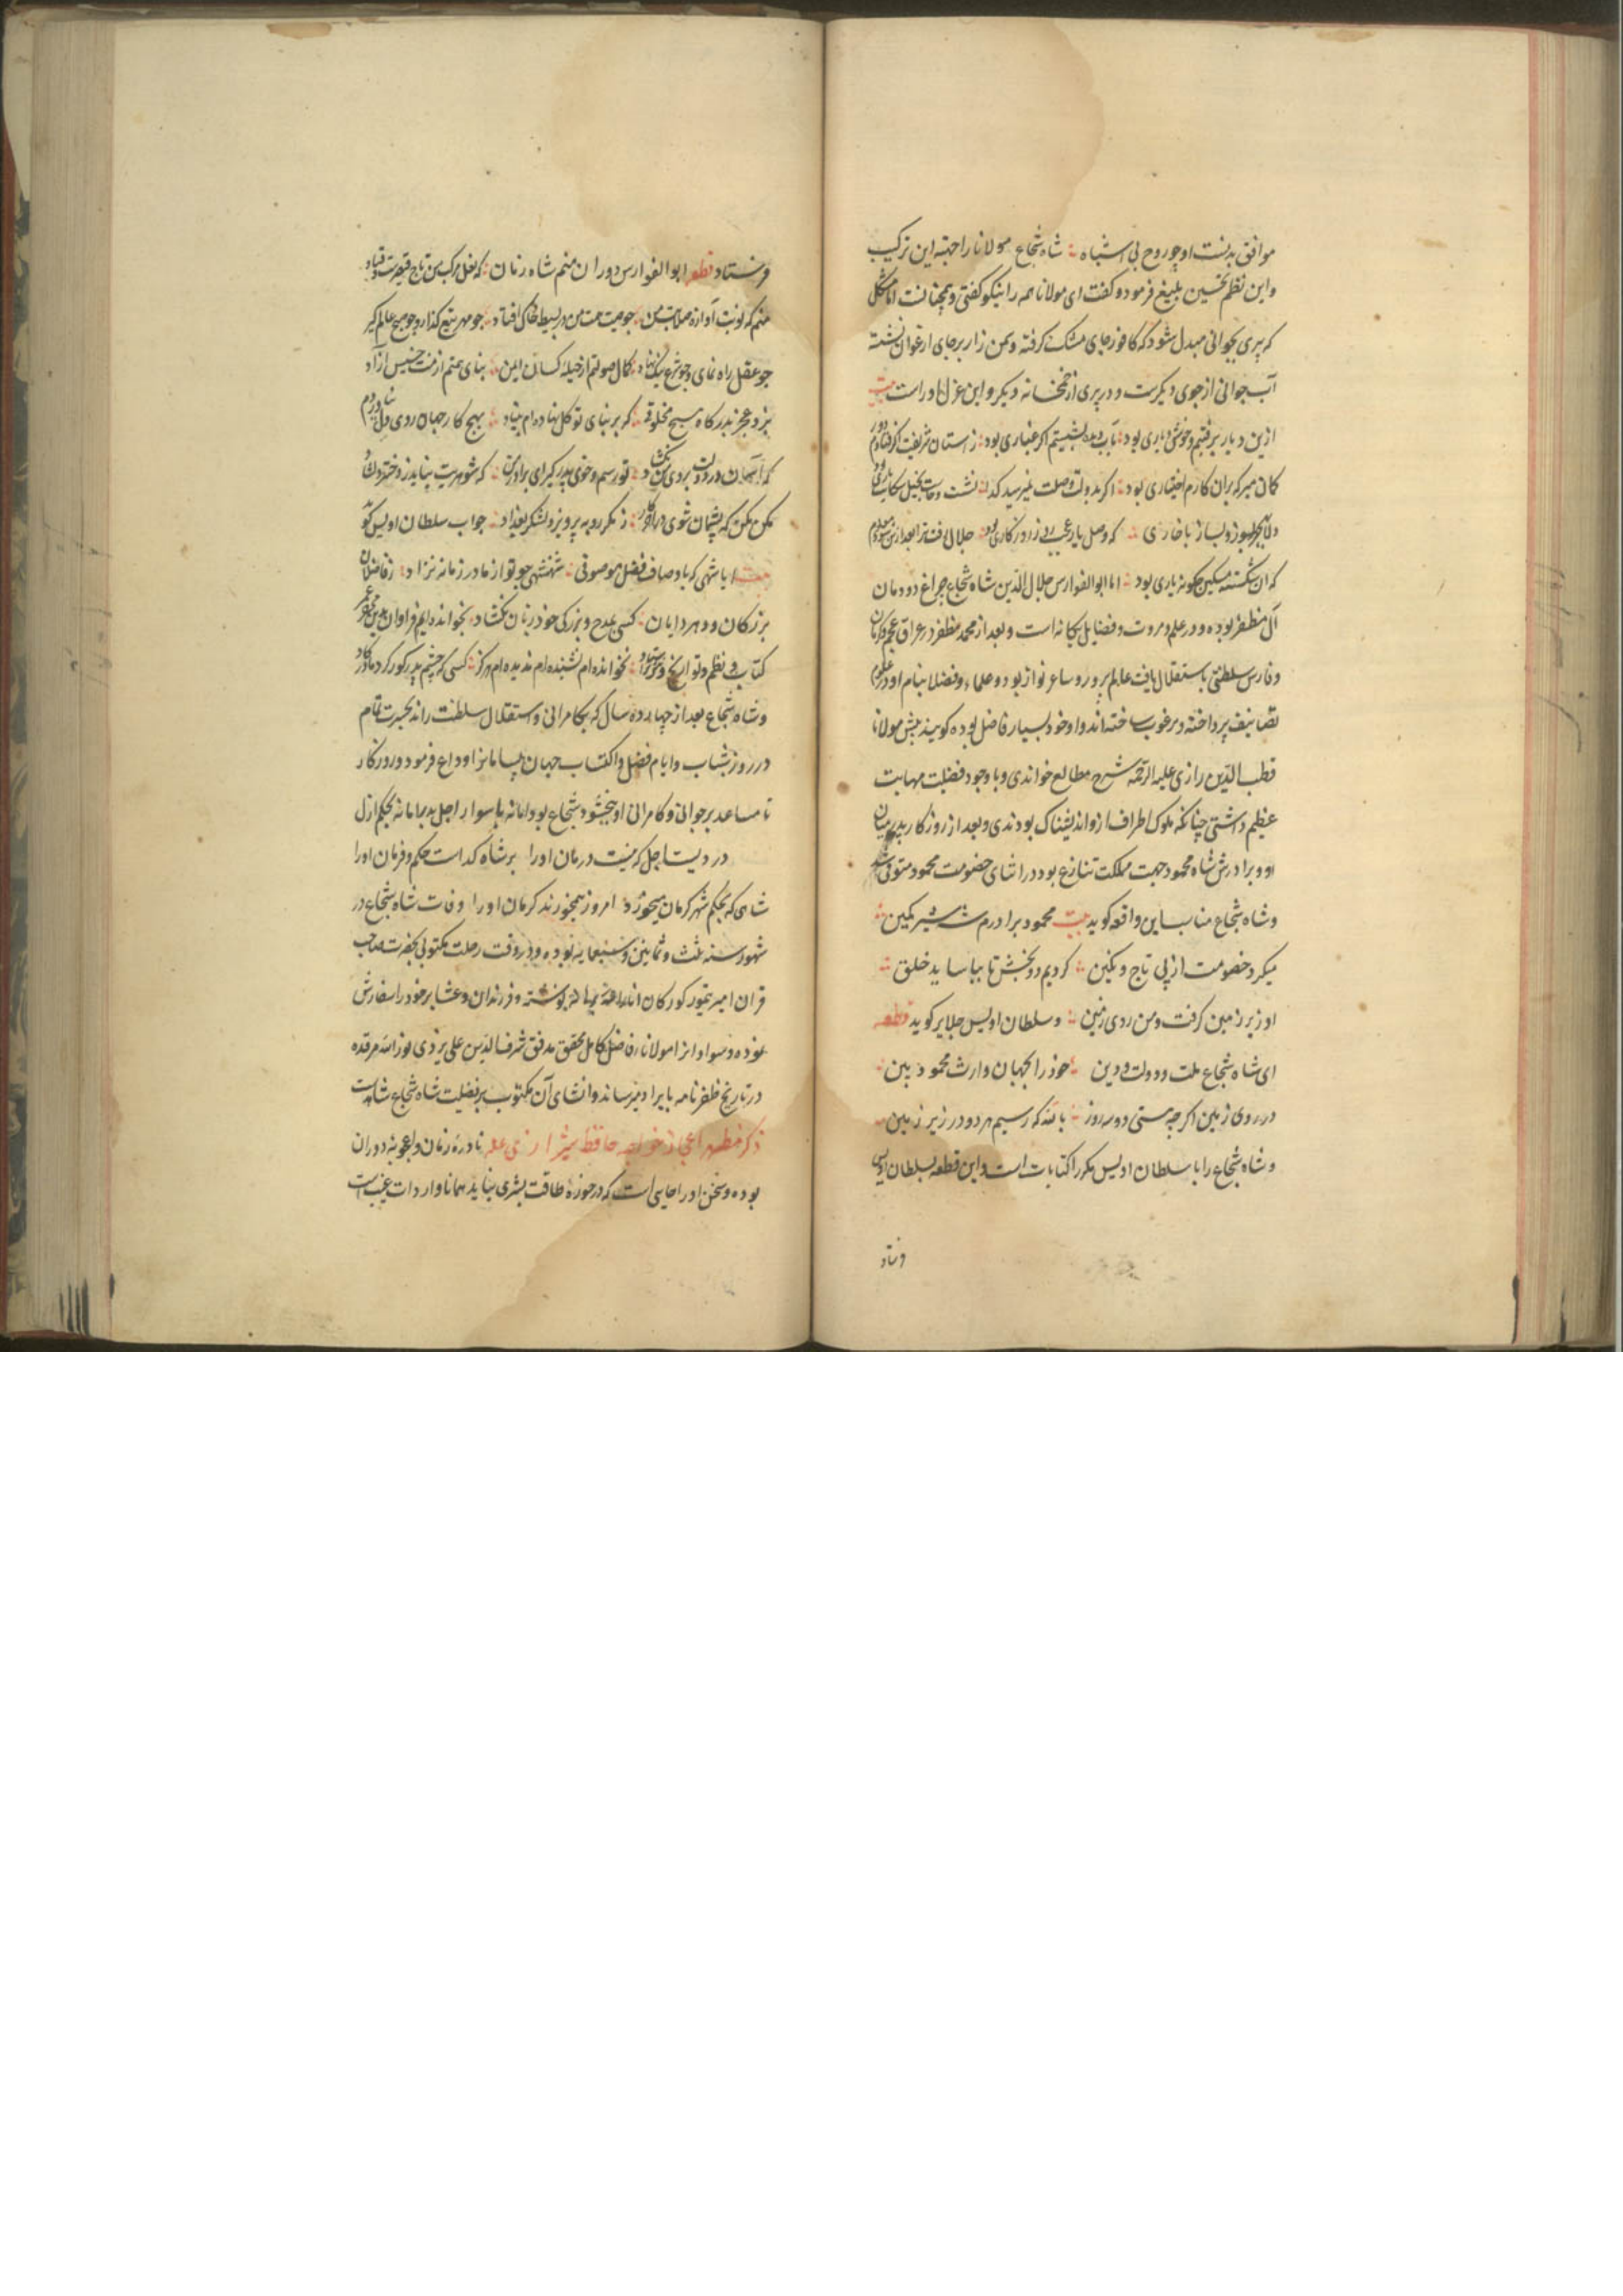 موافق بدنست او چو روح بی اشتباه شاه شجاع مولانا را جهته این ترکیب
و این نظم تحسین بلیغ فرمود و گفت ای مولانا همه را نیکو گفتی و همچنانست اما مشکل
که پیری بجوانی مبدل شود که کافور جای مشک گرفته و سمن زار بر جای ارغوان نشسته
آب جوانی از جوی دیگرست و در پیری از خمخانه دیگر و این غزل او راست بیت
ازین دیار برفتیم و خوش دیاری بود بآب دیده بشستیم اگر غباری بود ز آستان شریفت گر فتادم دور
کمان مبر که بران کارم اختیاری بود اگر بدولت وصلت نمیرسید کدا نشست و خاست بخیل سکانت باری بود
دلا بهجر بسوز و بساز با خاری که وصل یار عجب روز و روزکاری بود جلال رفت ترا بعد ازین شود معلوم
که آن شکسته مسکین چگونه یاری بود اما ابو الفوارس جلال الدین شاه شجاع چراغ دودمان
آل مظفر بوده و در علم و مروت و فضایل یکانه است و بعد از محمد مظفر در عراق عجم و کرمان
و فارس سلطنتی باستقلال یافت عالم پرور و شاعر نواز بود و علماء و فضلا بنام او در علوم
تصانیف پرداخته و مرغوب ساخته‌اند و او خود بسیار فاضل بوده کویند پیش مولانا
قطب الدین رازی علیه الرحمه شرح مطالع خواندی و با وجود فضیلت مهابت
عظیم داشتی چنانکه ملوک اطراف ازو اندیشناک بودندی و بعد از روزکار پدر میان
او و برادرش شاه محمود جهت مملکت تنازع بود در اثنای خصومت محمود متوفی شد
و شاه شجاع مناسب این واقعه کوید بیت محمود برادرم شه شیر کمین
میکرد خصومت از پی تاج و نکین کردیم دو بخش تا بیاساید خلق
او زیر زمین گرفت و من روی زمین و سلطان اویس جلایر کوید قطعه
ای شاه شجاع ملت و دولت و دین خود را بجهان وارث محمود مبین
در روی زمین اگر چه هستی دو سه روز بالله که رسیم هر دو در زیر زمین
و شاه شجاع را با سلطان اویس مکرر اکتابات است و این قطعه بسلطان اویس
فرستاد
فرستاد قطعه ابو الفوارس دوران منم شاه زمان که نعل مرکب من تاج قیصرست و قباد
منم که نوبت آوازه صلابت من چو صیت همت من در بسیط خاک افتاد چو مهر تیغ گذار و چو صبح عالم گیر
چو عقل راه نمای و چو شرع نیک نهاد
بر و عجز بدرکاه هیچ مخلوقی که بر بنای توکل نهاده ام بنیاد بهیچ کار جهان روی دل نیاوردم
که آسمان در دولت بروی من نکشاد تو رسم و خوی پدر کیر ای برادر من که شوهریت نیاید ز دختر دلشاد
مکن مکن که پشیمان شوی در آخر کار ز مکر روبه پرویز و لشکر بغداد جواب سلطان اویس کوید
ایا شهی که باوصاف فضل موصوفی شهنشهی چو تو از مادر زمانه نزاد ز فاضلان
بزرگان و دهر دانایان کسی بمدح و بزرکی خود زبان نکشاد بخوانده ایم فراوان درین
کتاب نظم و تواریخ و نثر نخوانده ام نشنیده ام ندیده ام هرگز کسی که چشم پدر کور کرد و مادر کاد
و شاه شجاع بعد از چهارده سال که بکامرانی و استقلال سلطنت راند بحسرت تمام
در روز شباب و ایام فضل و اکتساب جهان بیسامانرا وداع فرمود و روزکار
نا مساعد بر جوانی و کامرانی او نبخشود شجاع بود اما نه با سوار اجل مدبرا ما نه بحکم ازل
دردیست اجل که نیست درمان او را بر شاه و کداست حکم و فرمان او را
شاهی که بحکم شهر کرمان میخورد امروز همیخورند کرمان او را وفات شاه شجاع در
شهور سنه ثلث و ثمانین و سبعمایه بوده و در وقت رحلت مکتوبی بحضرت صاحب
قران امیر تیمور کورکان انار الله برهانه نوشته و فرزندان و عشایر خود را سفارش
نموده و سواد انرا مولانا فاضل کامل محقق مدقق شرف الدین علی یزدی نور الله مرقده
در تاریخ ظفرنامه بایراد میرساند و انشای آن مکتوب بر فضیلت شاه شجاع شاهدست
ذکر مظهر اعجاز خواجه حافظ شیرازی علیه نادره زمان و اعجوبه دوران
بوده و سخن او را حالی است که در حوزه طاقت بشری نیاید همانا واردات غیبی است